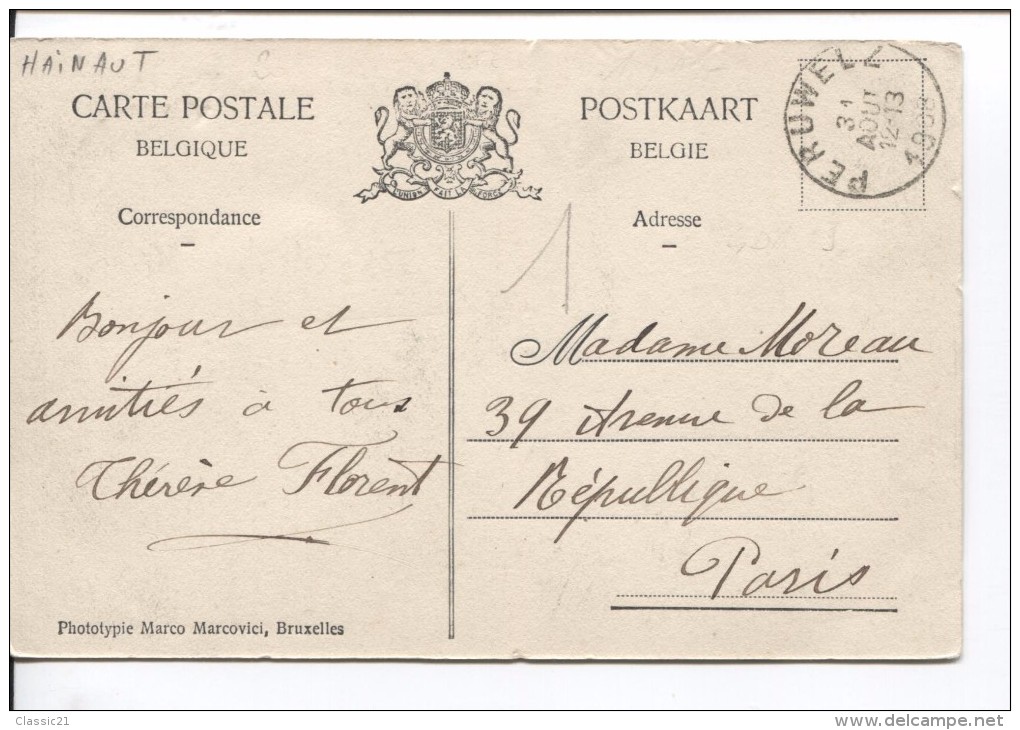 HAiNAUT
CARTE POSTALE
BELGIQUE
Correspondance
L'UNION FAIT LA FORCE
POSTKAART
BELGIE
Adresse
PERUWELZ
31
AOUT
12-13
1
Bonjour et
amitiés à tous
Thérèse Florent
Madame Moreau
39 Avenue de la
République
Paris
Phototypie Marco Marcovici, Bruxelles
Classic21
http://www.delcampe.net